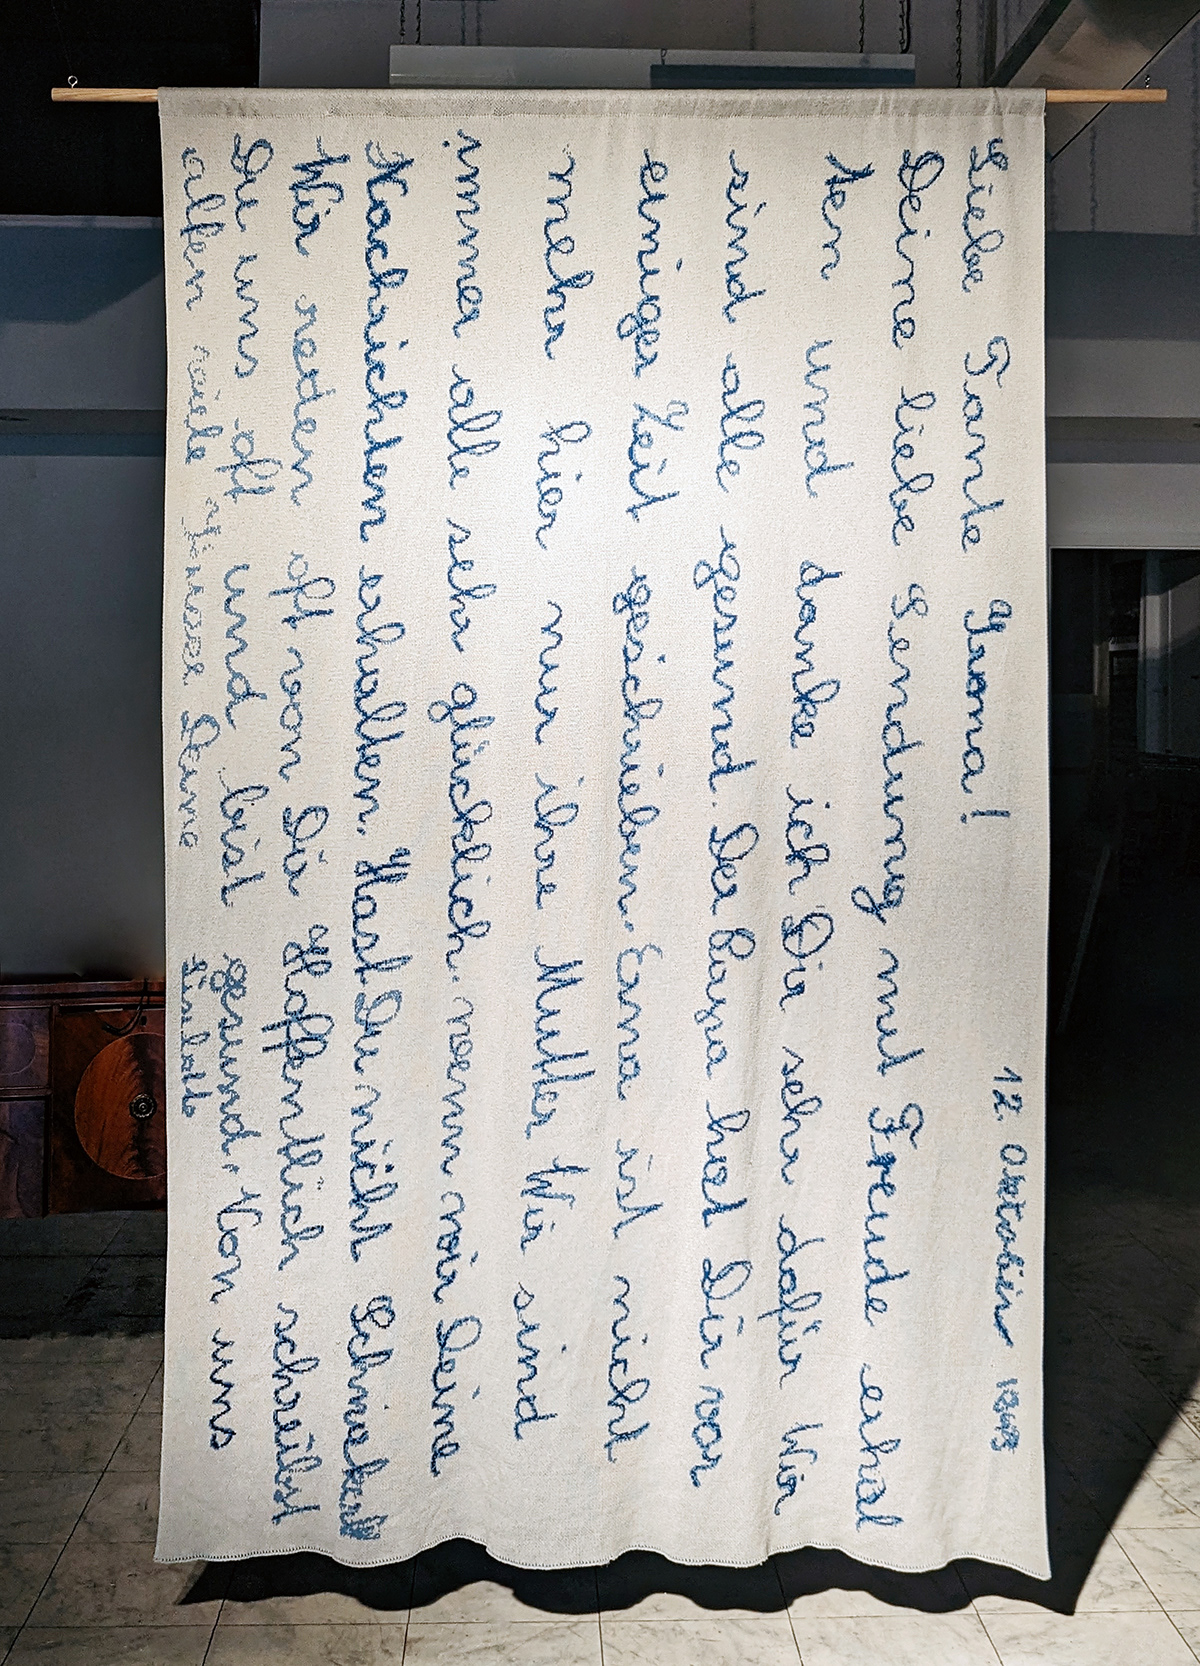 12. Oktober 1943
Liebe Tante Irma!
Deine liebe Sendung mit Freude erhal
ten und danke ich Dir sehr dafür Wir
sind alle gesund. Der hat Dir vor
einiger Zeit geschrieben. Erna ist nicht
mehr hier nur ihre Mutter Wir sind
immer alle sehr glücklich. wenn wir Deine
Nachrichten erhalten. Hast Du nicht
Wir reden oft von Dir Hoffentlich schreibst
Du uns oft und bist gesund. Von uns
allen viele Deine Liselotte